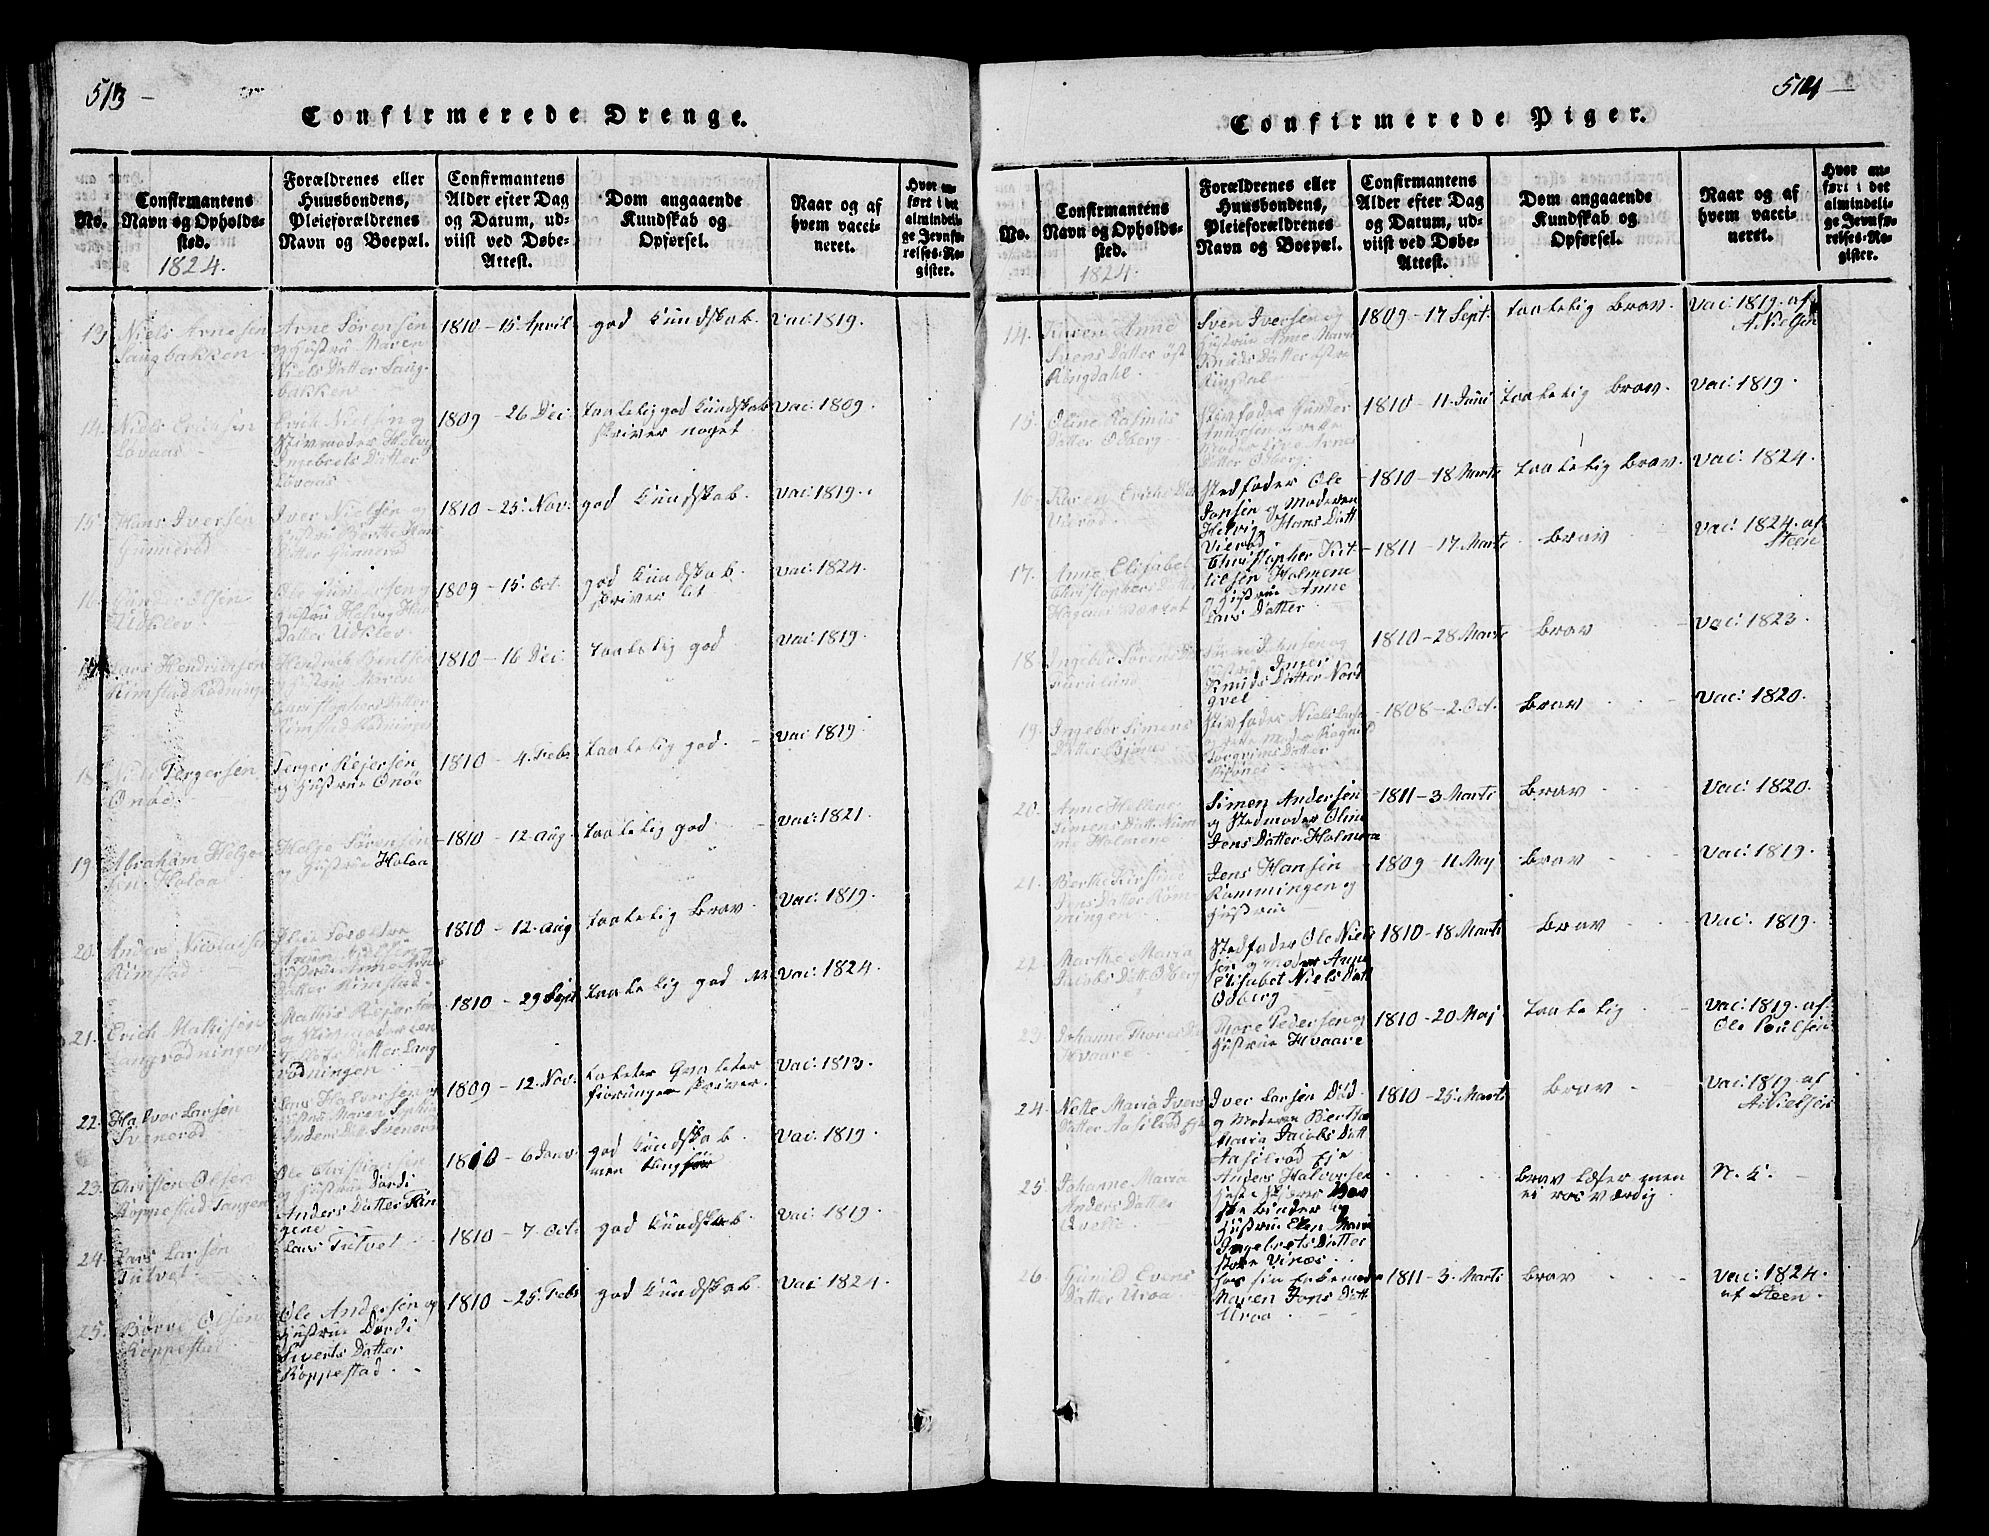 513
Confirmerede Drenge.
No.
Confirmantens
Navn og Opholds-
sted.
1824.
Forældrenes eller
Huusbondens,
Pleieforældrenes
Navn og Boepæl.
Confirmantens
Alder efter Dag
og Datum, ud-
viist ved Døbe-
Attest.
Dom angaaende
Kundskab og
Opførsel.
Naar og af
hvem vacci-
neret.
Hvor an-
ført i det
almindeli-
ge Jevnfø-
relses-Re-
gister.
13 Niels Arnesen
Saugbakken
Arne Sørensen
og Hustrue Maren
Niels Datter Saug-
bakken
1810 - 15 April
god Kundskab.
Vac: 1819.
14. Niels Erichsen
Lovaas
Erich Nielsen og
Stivmoder Helvig
Ingebrets Datter
Lovaas
1809 - 26 Dec:
taalelig god Kundskab
skriver noget
Vac: 1809.
15. Hans Iversen
Gunnerød
Iver Nielsen og
Hustrue Berthe Hans
Datter Gunnerød
1810 - 25. Nov:
god Kundskab.
Vac: 1819.
16. Gunder Olsen
Udklev
Hustrue Helvig
Datter Udklev
1809 - 15. Oct.
god Kundskab.
skriver lit
Vac: 1824.
Lars Hendrichsen
Rimstad Rødningen
Hendrich Bentsen
og Hustrue Maren
Christophers Datter
Rimstad Rødningen
1810 - 16 Dec:
taalelig god
Vac: 1819.
18. Tergersen
Onøe
Terger Rejersen
og Hustrue Onøe
1810 - 4. Febr
taalelig god.
Vac: 1819.
19. Abraham Helge-
sen Holaa
Helge Sørensen
og Hustrue Holaa
1810 - 12. Aug.
taalelig god
Vac: 1821.
20. Anders Nicolaisen
Rimstad
Hustrue Anne
Datter Rimstad.
1810 - 12. Aug
taalelig Brav.
Vac: 1819.
21. Erich Mathisen
Langrødningen
Mathis Rejersen
og Stivmoder
Datter Lang
rødningen
1810 - 29 Sept.
taalelig god
Vac: 1824.
22. Halvor Larsen
Svenerød
Lars Halvorsen og
Hustrue Maren Sophie
Anders Datt. Svenerød
1809 - 12. Nov.
skriver.
Vac: 1813.
23. Christen Olsen
Roppestad Tangen
Ole Christensen
og Hustrue Dordi
Anders Datter Tan
gene
1810 - 6 Janv
god Kundskab.
men
Vac: 1819.
24. Lars Larsen
Tutvet
Lars Tutvet
1810 - 7. Oct.
god Kundskab.
Vac: 1819.
25. Børre Olsen
Roppestad
Ole Andersen og
Hustrue Dordi
Siverts Datter
Roppestad.
1810 - 25. Febr
god Kundskab.
Vac: 1824.
514
Confirmerede Piger.
No.
Confirmantens
Navn og Opholds-
sted.
1824.
Forældrenes eller
Huusbondens,
Pleieforældrenes
Navn og Boepæl.
Confirmantens
Alder efter Dag
og Datum, ud-
viist ved Døbe-
Attest.
Dom angaaende
Kundskab og
Opførsel.
Naar og af
hvem vacci-
neret.
Hvor an-
ført i det
almindeli-
ge Jevnfø-
relses-Re-
gister.
14. Karen Anne
Svens Datter øst
Ringdahl.
Sven Iversen og
Hustrue Anne Marie
Knuds Datter østre
Ringdal
1809 - 17 Sept.
taalelig Brav.
Vac: 1819. af
A. Nielsen
15. Oline Rasmus
Datter Odberg
Stivfader Gunder
Datter Odberg.
1810 - 11. Juni
taalelig Brav.
Vac: 1819.
16. Karen Erichs Dtt
Vierød.
Stedfader Ole
Jonsen og Moderen
Helvig Hans Datt
Vierød.
1810 - 18 Marts
taalelig Brav.
Vac: 1824.
17. Anne Elisabet
Christophers Datter
Christopher Ket-
tilsen Holmene
og Hustrue Anne
Lars Datter
1811 - 17 Marts
Brav
Vac: 1824. af
Steen
18. Ingebor Sørens Dtt
Furulund
Inger
Knuds Datter Nord
qvel
1810 - 28 Marts
Brav
Vac: 1823.
19. Ingebor Simens
Datter Bjønes
Stivfader Niels Larsen
og Moder Ragnild
Torgrims Datter
Bjønes
1808 - 2. Oct.
Brav
Vac: 1820.
20. Anne Hellene
Simens Datt.
Holmene
Simen Andersen
og Stedmoder Oline
Jens Datter Holmene
1811 - 3 Marts
Brav
Vac: 1820.
21. Berthe Kirstine
Jens Datter Røm
mingen
Jens Hansen
Rømmingen og
Hustrue
1809 - 11 Maj
Brav
Vac: 1819.
22 Marthe Maria
Jacobs Datt Odberg
Stedfader Ole Niels
sen og Moder Anne
Elisabet Niels Datt
Odberg
1810 - 18 Marts
Brav
Vac: 1819.
23. Johanne Thores Dt
Hvaare
Thore Pedersen og
Hustrue Hvaare
1810 - 20 Maj
taalelig
Vac: 1819. af
Ole Poulsen
24. Nette Maria Ivers
Datter Aasilrød Eje
Iver Larsen Død
og Moderen Berthe
Maria Jacobs Datt
Aasilrød Eje
1810 - 25. Marts
Brav
Vac: 1819. af
A. Nielsen
25. Johanne Maria
Anders Datter
Anders Halvorsen
binder og
Hustrue Elen Marie
Ingebrets Datter
store Vinæs
Brav Læser men
ei rosværdig
N. 5.
26. Gunild Evens
Datter Uroa
hos sin Enkemoder
Maren Jons Datt
Uroa
1811 - 3. Marts
Brav
Vac: 1824.
af Steen.